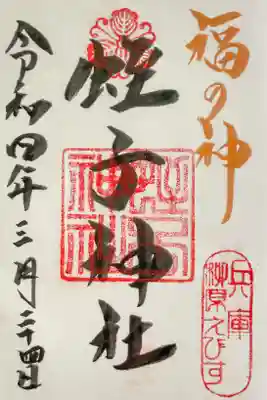 福の神
兵庫
柳原えびす
蛭子神社
令和四年三月二十四日